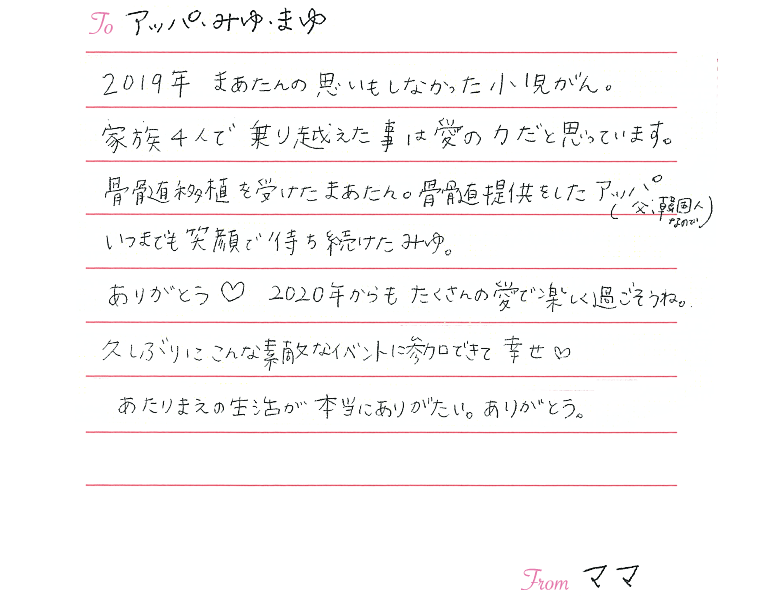 To アッパ・みゆ・まゆ
2019年 まあたんの思いもしなかった小児がん。
家族4人で 乗り越えた事は愛の力だと思っています。
骨髄移植を受けたまあたん。骨髄提供をしたアッパ
(父:韓国人なので)
いつまでも笑顔で待ち続けたみゆ。
ありがとう♡ 2020年からも たくさんの愛で楽しく過ごそうね。
久しぶりにこんな素敵なイベントに参加できて 幸せ♡
あたりまえの生活が 本当にありがたい。ありがとう。
From ママ